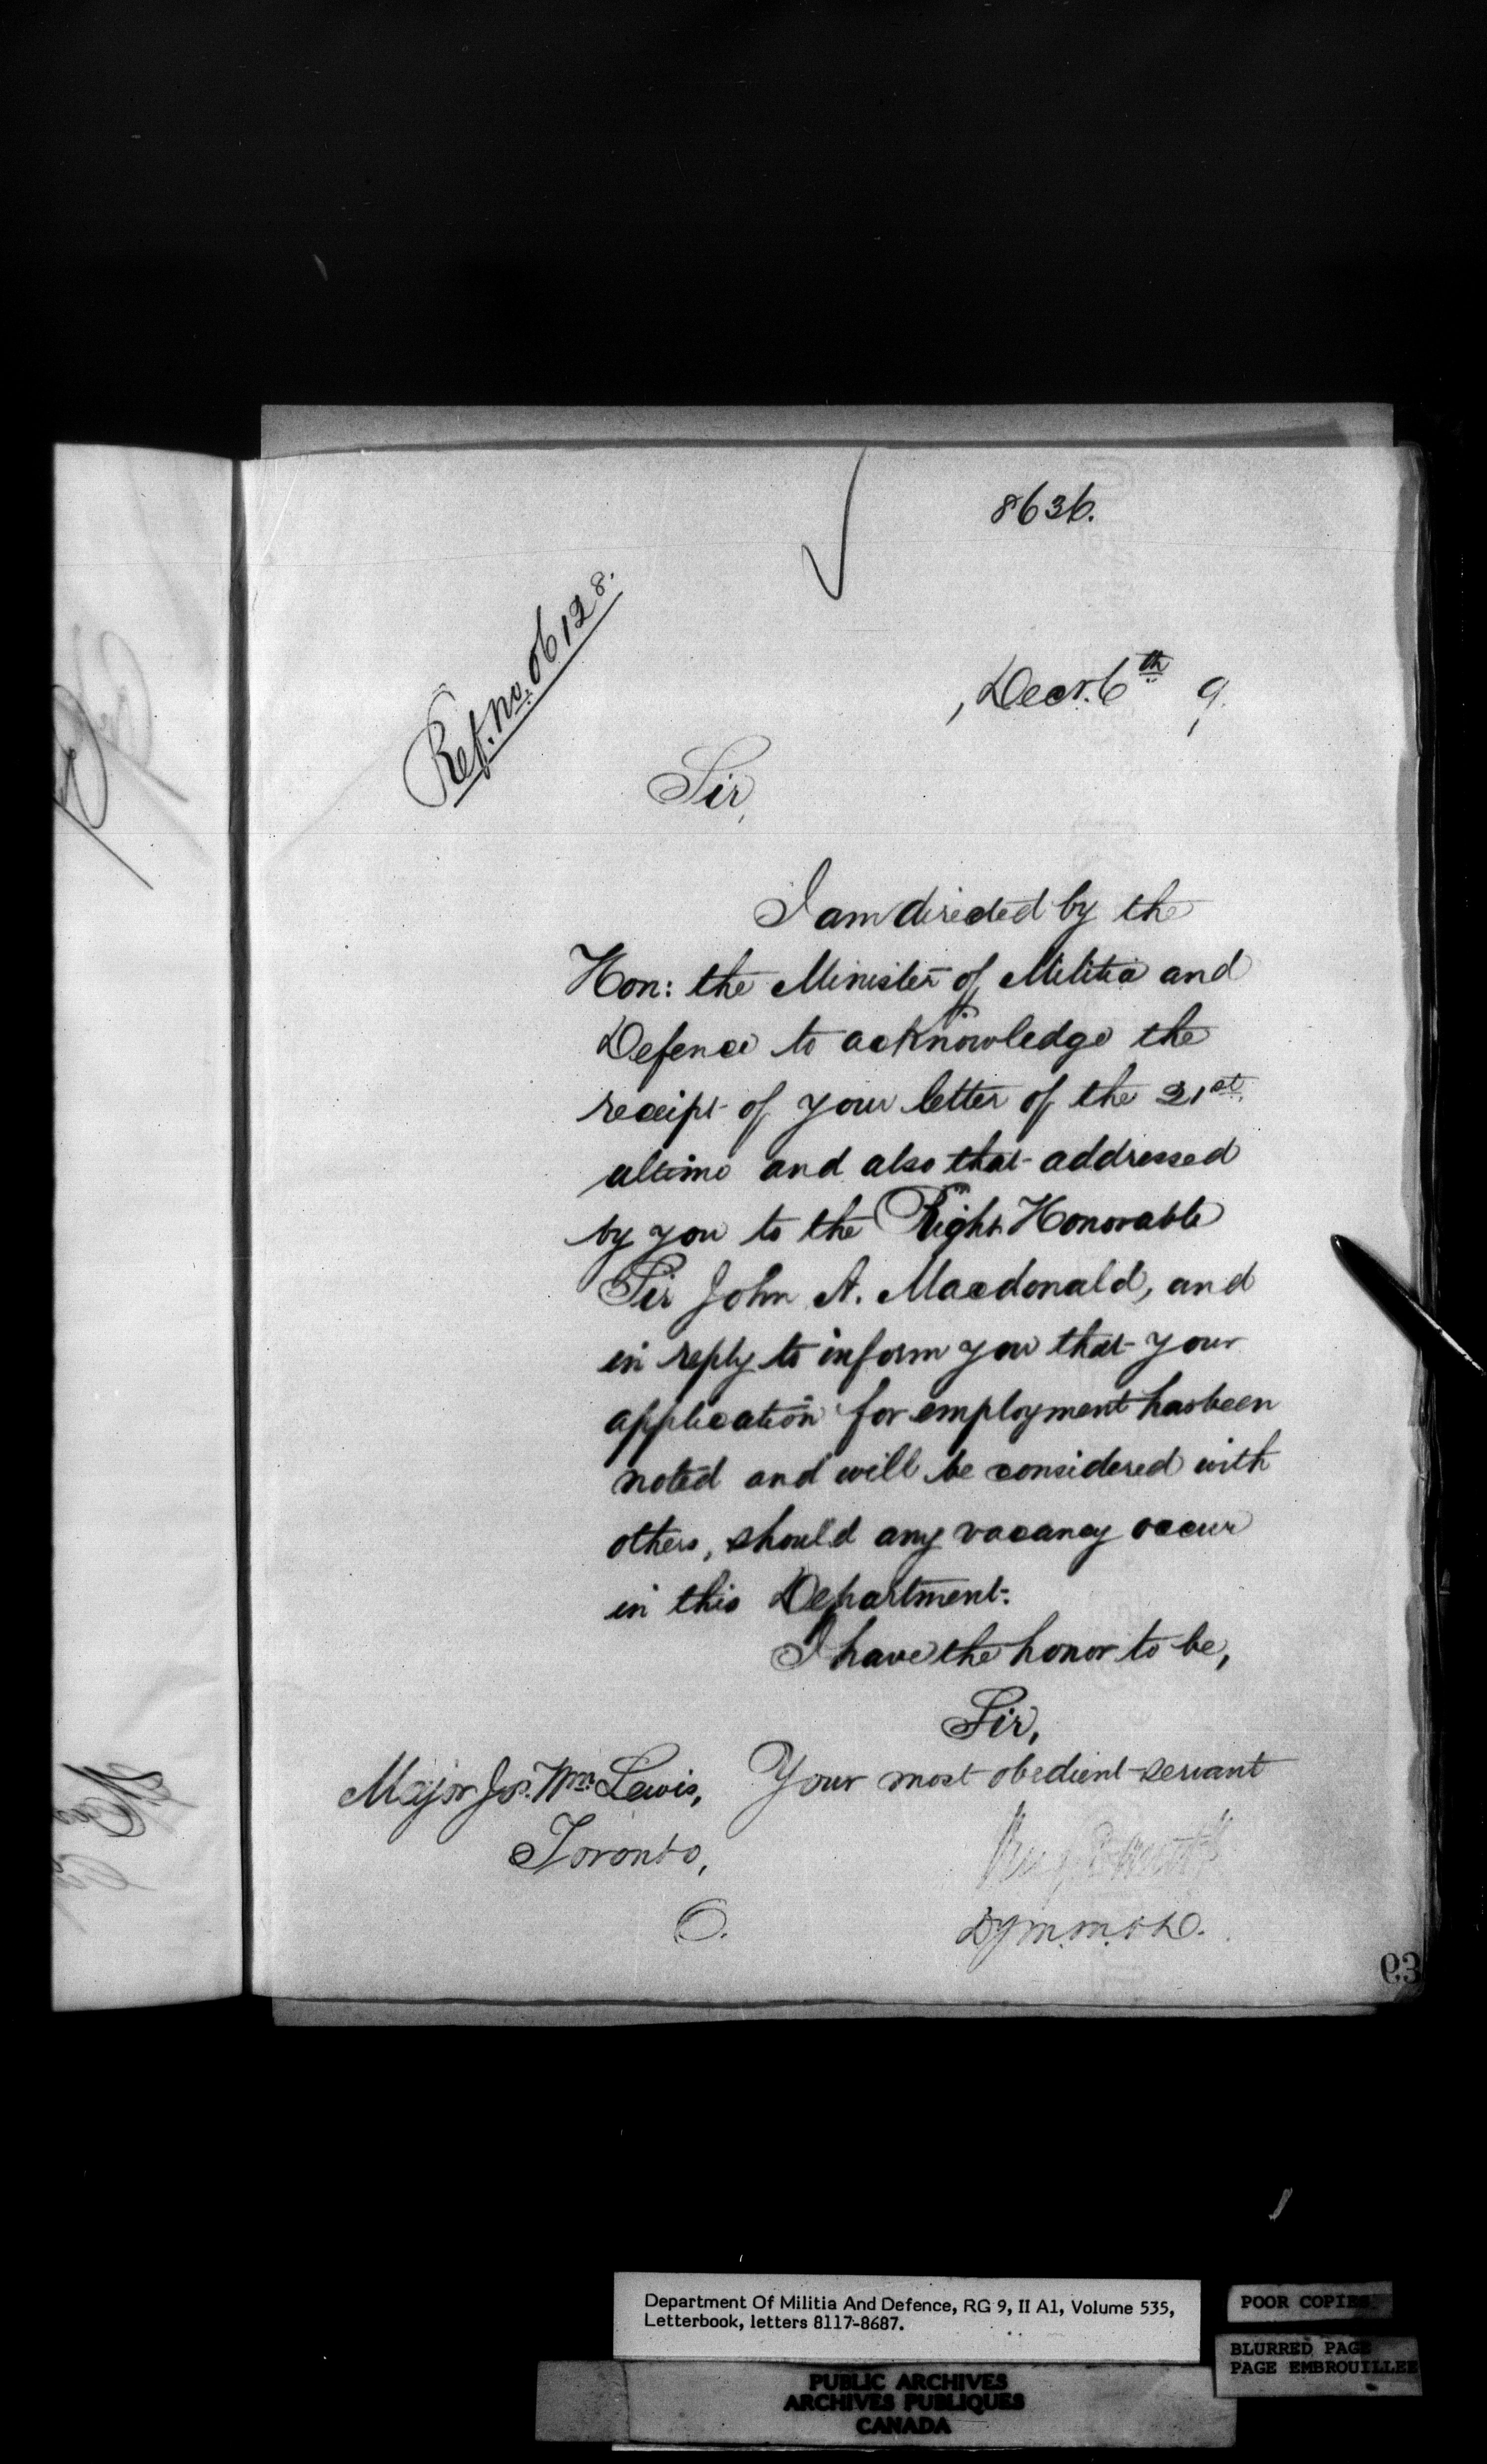 8636.
Ref. No. 06128.
, Decr. 6th 9.
Sir,
I am directed by the
Hon: the Minister of Militia and
Defence to acknowledge the
receipt of your letter of the 21st.
ultimo and also that addressed
by you to the Right Honorable
Sir John A. Macdonald, and
in reply to inform you that your
application for employment has been
noted and will be considered with
others, should any vacancy occur
in this Department.
I have the honor to be,
Sir,
Your most obedient servant
Major Jos. Wm. Lewis,
Toronto,
O.
D. of M. M. & D.
93
Department Of Militia And Defence, RG 9, II A1, Volume 535,
Letterbook, letters 8117-8687.
POOR COPIES
BLURRED PAGE
PAGE EMBROUILLEE
PUBLIC ARCHIVES
ARCHIVES PUBLIQUES
CANADA